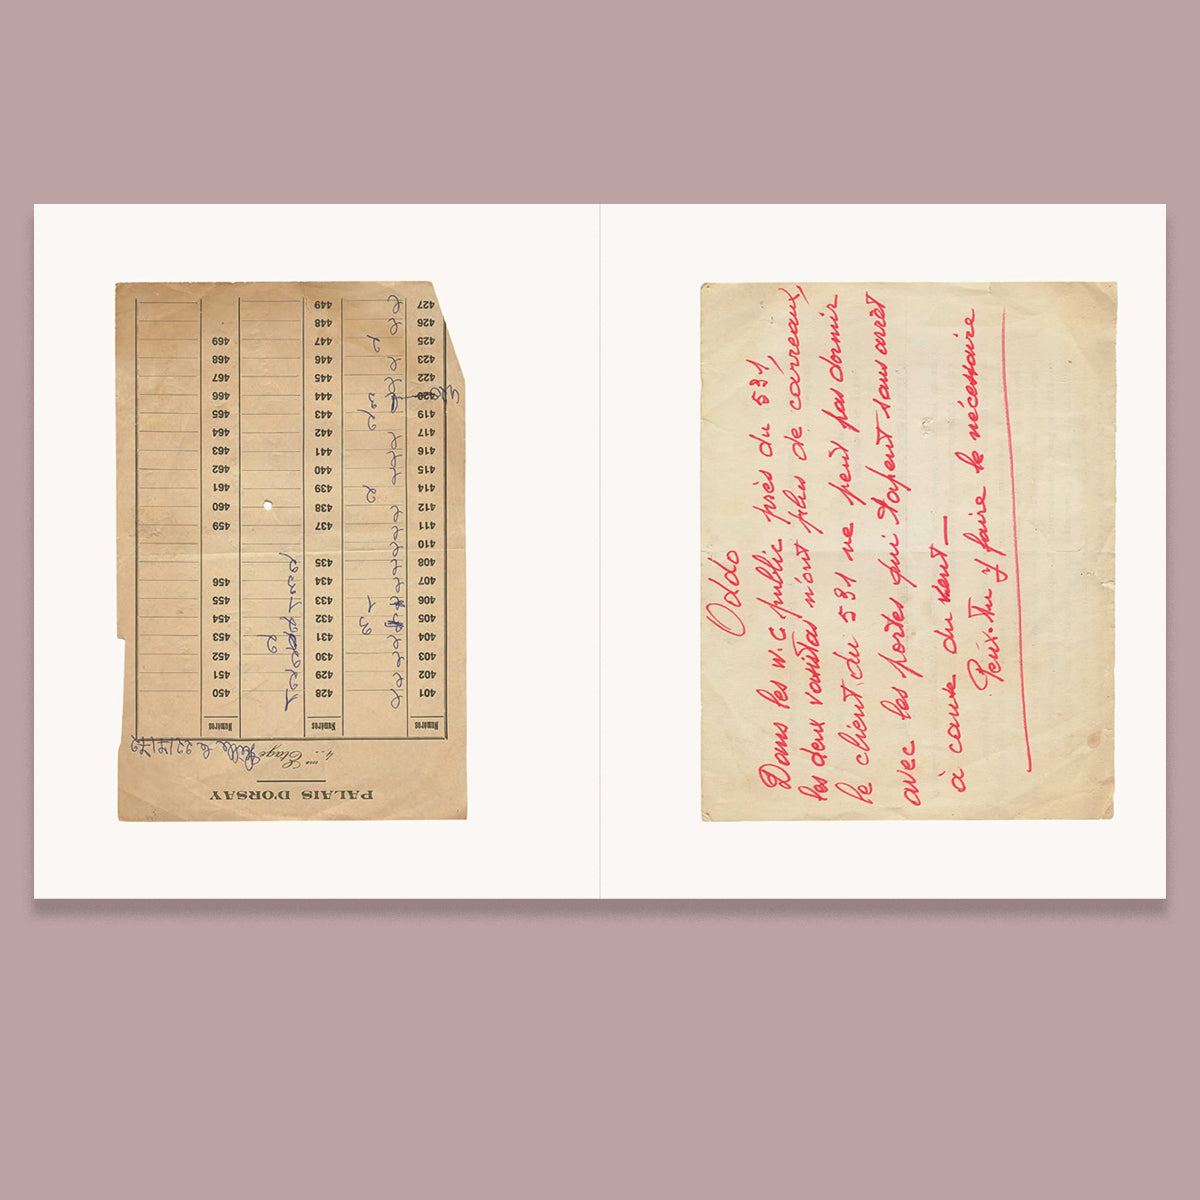 PALAIS D'ORSAY
4me Etage
Numéros Numéros Numéros
401 428 450
402 429 451
403 430 452
404 431 453
405 432 454
406 433 455
407 434 456
408 435
410
411 437 459
412 438 460
414 439 461
415 440 462
416 441 463
417 442 464
419 443 465
420 444 466
422 445 467
423 446 468
425 447 469
426 448
427 449
Oddo
Dans les W.C public près du 531,
les deux vasistas n'ont plus de carreaux,
le client du 531 ne peut pas dormir
avec les portes qui tapent sans arrèt
à cause du vent —
Peux-tu y faire le nécessaire